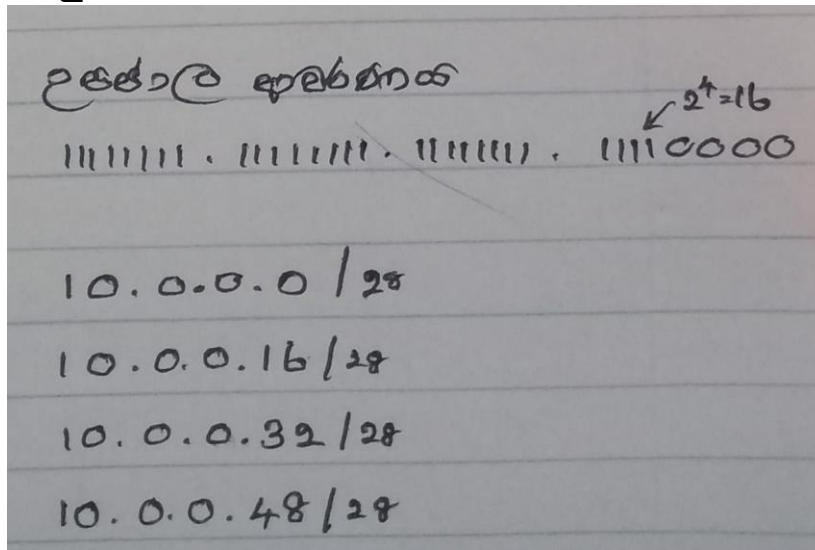 උපජාල ආවරණය
2⁴=16
11111111 . 11111111 . 11111111 . 11110000
10.0.0.0/28
10.0.0.16/28
10.0.0.32/28
10.0.0.48/28